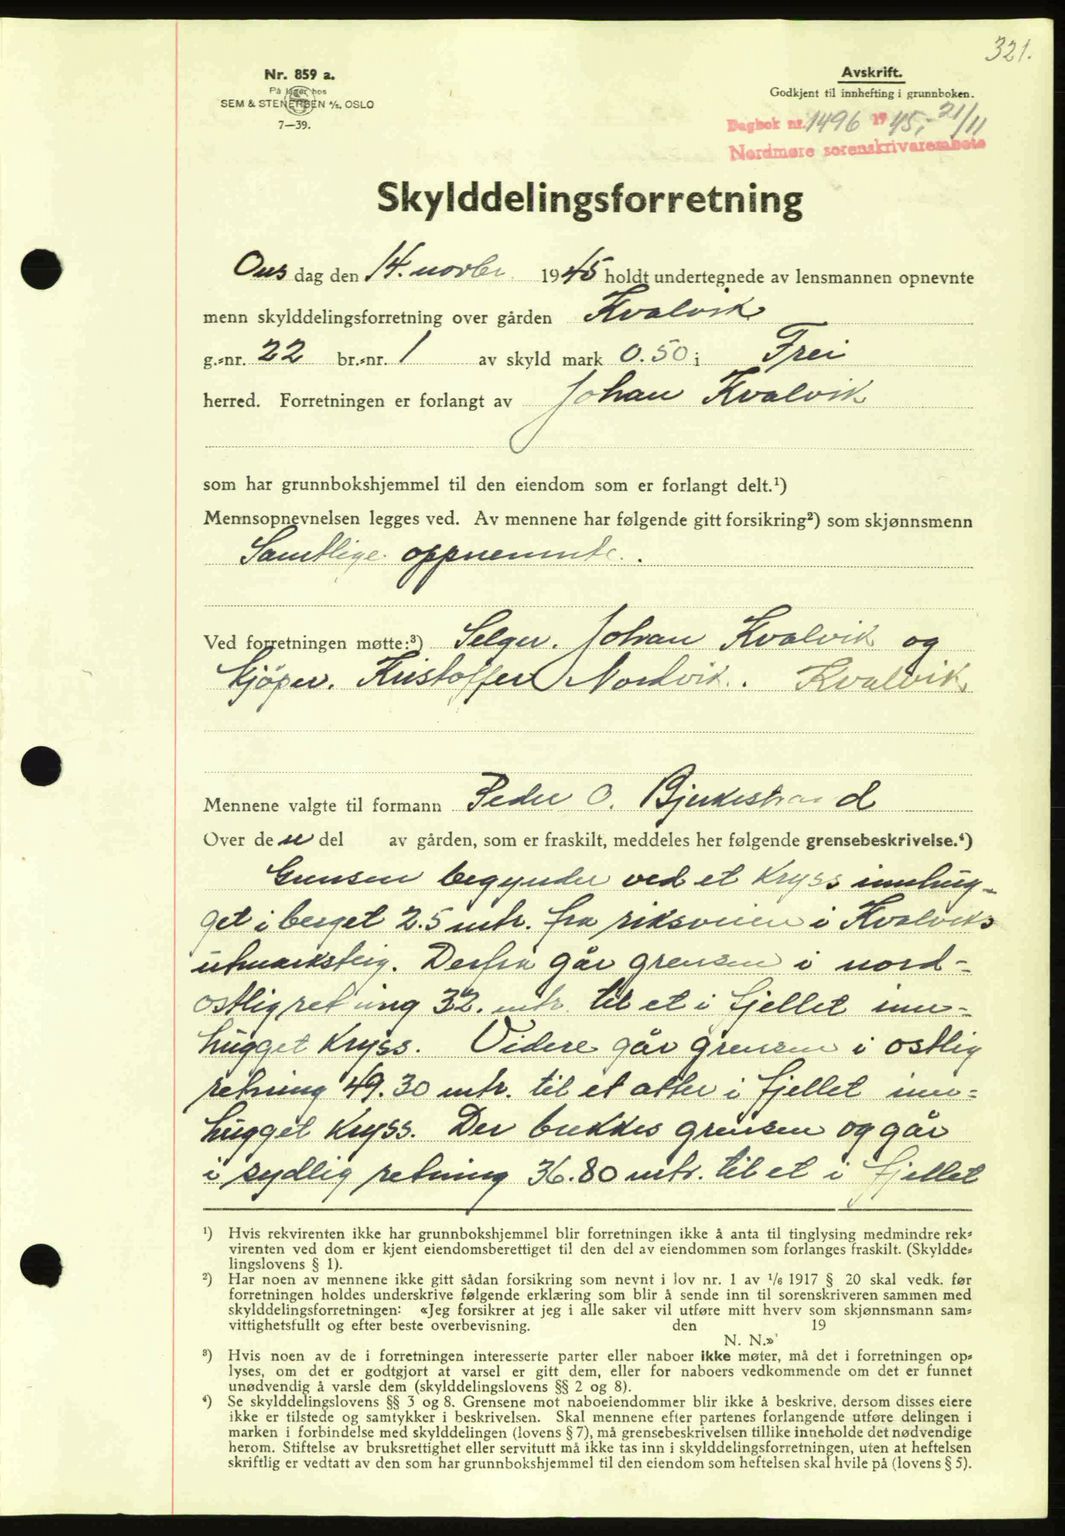 321.
Nr. 859 a.
På lager hos
SEM & STENERSEN A/S, OSLO
7—39.
Avskrift.
Godkjent til innhefting i grunnboken.
Dagbok nr. 1496 1945,- 21/11
Nordmøre sorenskriverembete
Skylddelingsforretning
Ons dag den 14. novbr. 1945 holdt undertegnede av lensmannen opnevnte
menn skylddelingsforretning over gården Kvalvik
g.-nr. 22 br.-nr. 1 av skyld mark 0.50 i Frei
herred. Forretningen er forlangt av Johan Kvalvik
som har grunnbokshjemmel til den eiendom som er forlangt delt.¹)
Mennsopnevnelsen legges ved. Av mennene har følgende gitt forsikring²) som skjønnsmenn
Samtlige oppnemnte.
Ved forretningen møtte:³) Selger. Johan Kvalvik og
kjöper. Kristoffer Nordvik. Kvalvik
Mennene valgte til formann Peder O. Bjerkestrand
Over den del av gården, som er fraskilt, meddeles her følgende grensebeskrivelse.⁴)
Grensen begynder ved et kryss innhug-
get i berget 2.5 mtr. fra riksveien i Kvalviks
utmarksteig. Derfra går grensen i nord-
ostlig retning 32. mtr. til et i fjellet inn-
hugget kryss. Videre går grensen i ostlig
retning 49.30 mtr. til et atter i fjellet inn-
hugget kryss. Der brekkes grensen og går
i sydlig retning 36.80 mtr. til et i fjellet
¹) Hvis rekvirenten ikke har grunnbokshjemmel blir forretningen ikke å anta til tinglysing medmindre rek-
virenten ved dom er kjent eiendomsberettiget til den del av eiendommen som forlanges fraskilt. (Skyldde-
lingslovens § 1).
²) Har noen av mennene ikke gitt sådan forsikring som nevnt i lov nr. 1 av 1/6 1917 § 20 skal vedk. før
forretningen holdes underskrive følgende erklæring som blir å sende inn til sorenskriveren sammen med
skylddelingsforretningen: «Jeg forsikrer at jeg i alle saker vil utføre mitt hverv som skjønnsmann sam-
vittighetsfullt og efter beste overbevisning. den 19
N. N.»
³) Hvis noen av de i forretningen interesserte parter eller naboer ikke møter, må det i forretningen op-
lyses, om det er godtgjort at varsel er gitt dem, eller for naboers vedkommende om det er funnet
unødvendig å varsle dem (skylddelingslovens §§ 2 og 8).
⁴) Se skylddelingslovens §§ 3 og 8. Grensene mot naboeiendommer blir ikke å beskrive, dersom disses eiere
ikke er tilstede og samtykker i beskrivelsen. Skal mennene efter partenes forlangende utføre delingen i
marken i forbindelse med skylddelingen (lovens § 7), må grensebeskrivelsen tillike inneholde det nødvendige
herom. Stiftelse av bruksrettighet eller servitutt må ikke tas inn i skylddelingsforretningen, uten at heftelsen
skriftlig er vedtatt av den som har grunnbokshjemmel til den eiendom som heftelsen skal hvile på (lovens § 5).